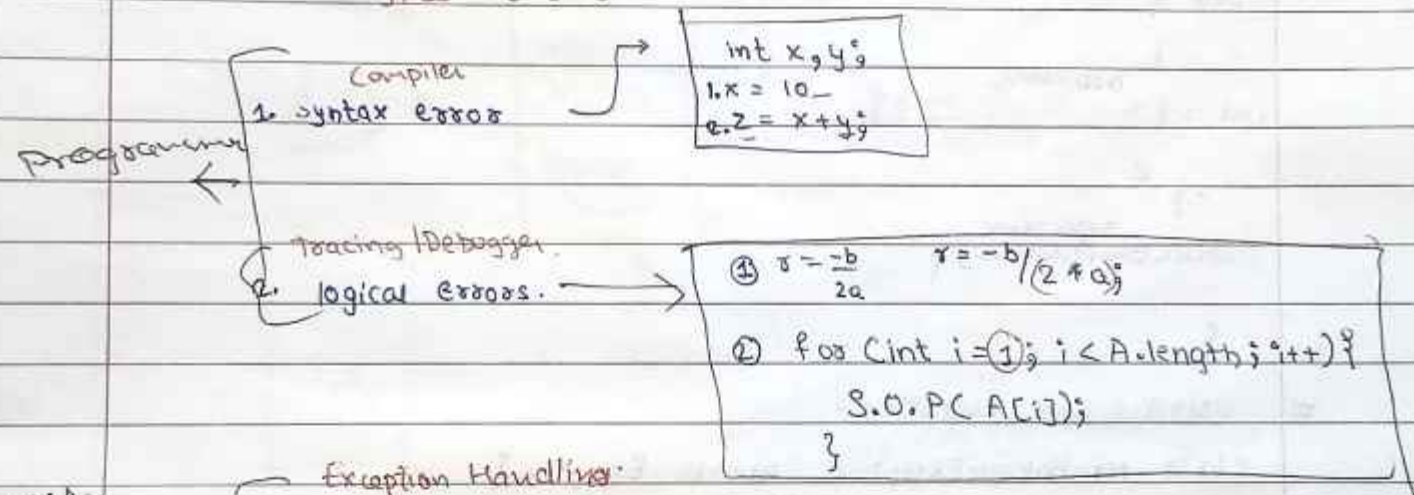 Compiler
1. syntax error
int x, y;
1. x = 10_
2. z = x+y;
programmer
Tracing / Debugger.
2. logical errors.
① r = -b/2a r = -b/(2*a);
② for (int i = 1; i < A.length; i++) {
S.O.P( A[i]);
}
Exception Handling: